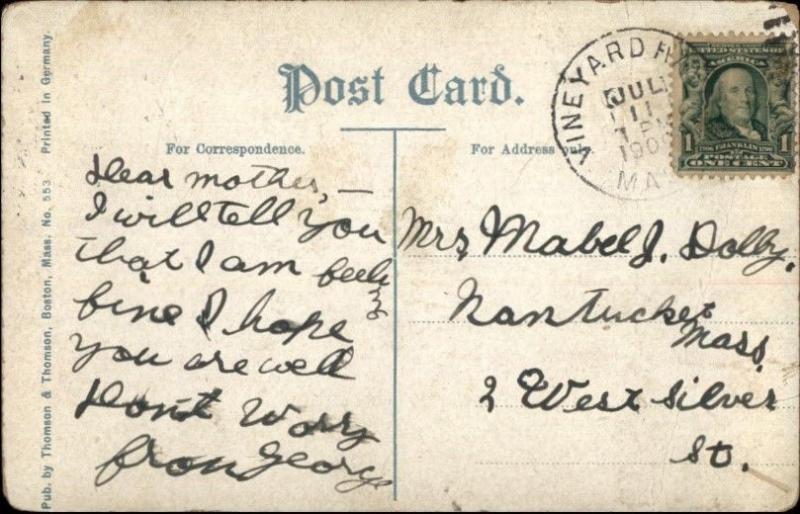 Post Card.
For Correspondence.
For Address only.
Pub. by Thomson & Thomson, Boston, Mass. No. 553 Printed in Germany.
VINEYARD H
JUL
11
190
MA
UNITED STATES OF
AMERICA
1 FRANKLIN 1
POSTAGE
ONE CENT
Dear mother, —
I will tell you
that I am feeling
fine I hope
you are well
dont worry
from George
Mrs Mabel J. Dolby.
Nantucket
Mass.
2 West Silver
St.